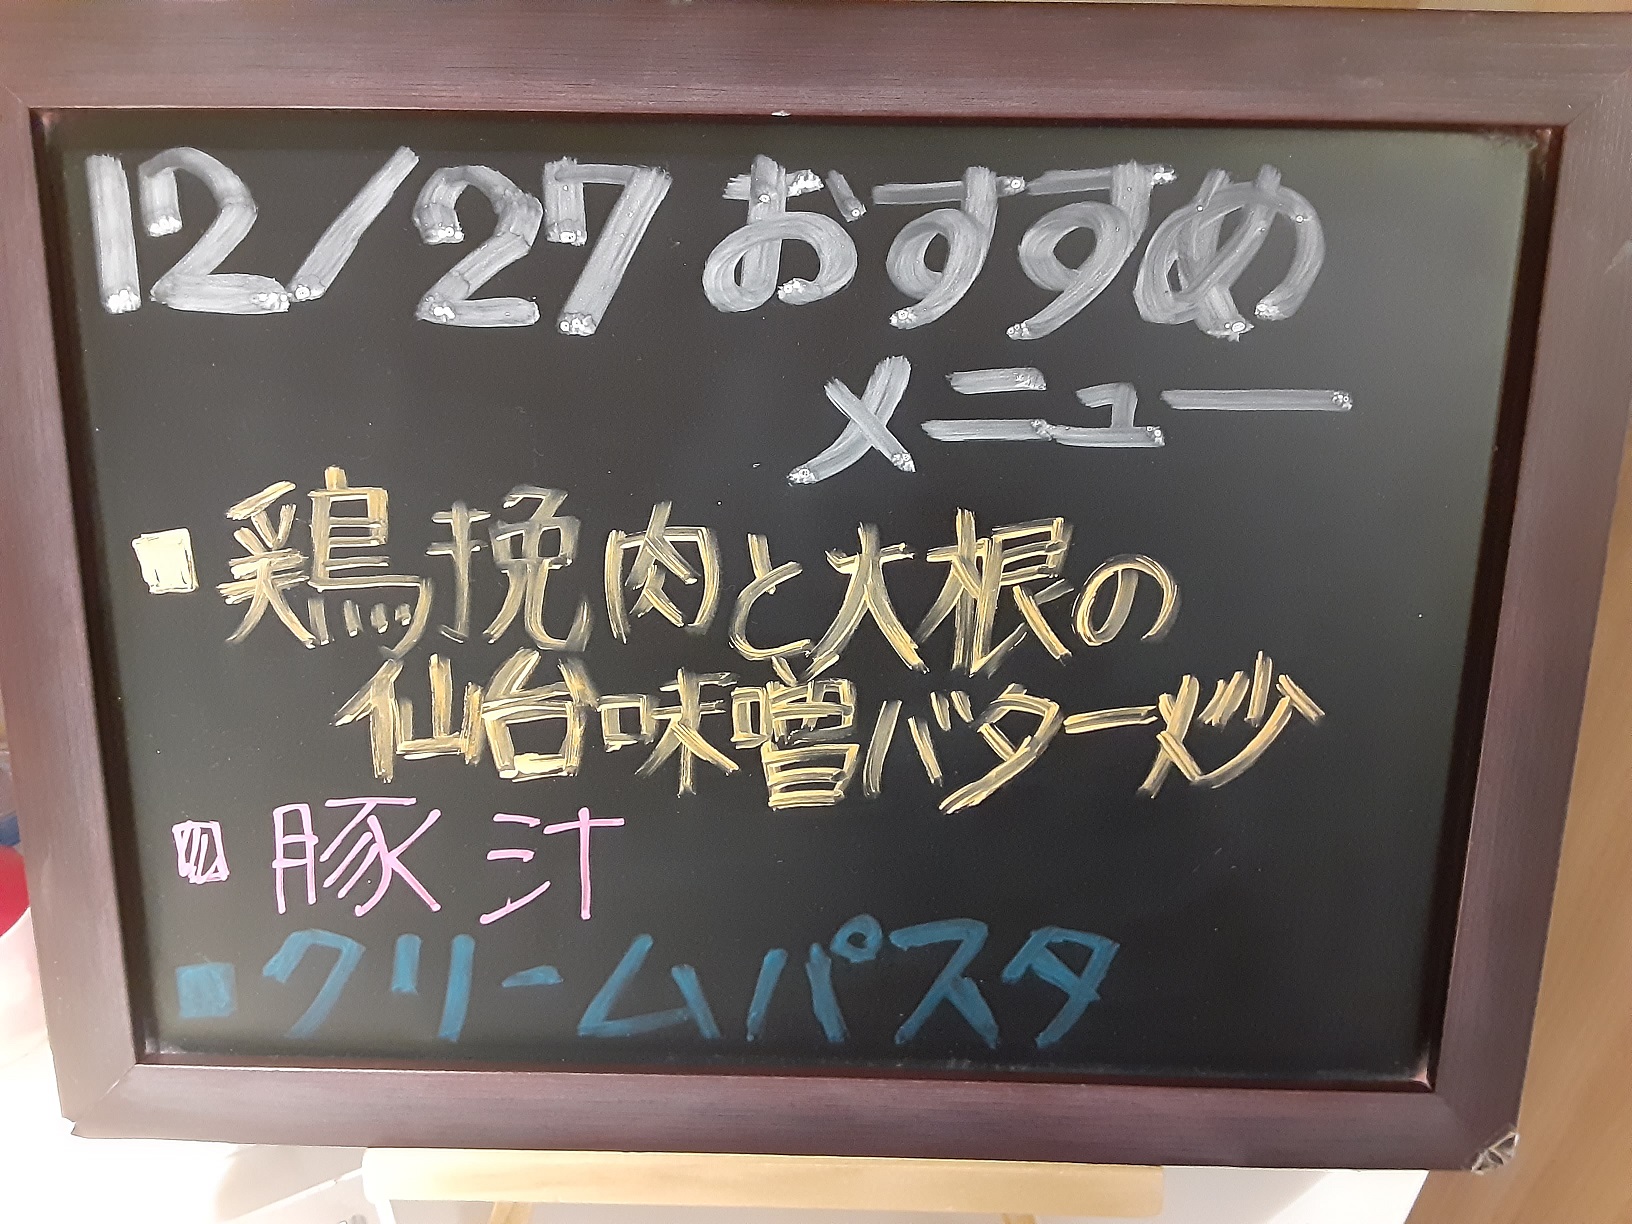 12/27 おすすめ
メニュー
■ 鶏挽肉と大根の
仙台味噌バター炒
■ 豚汁
■ クリームパスタ